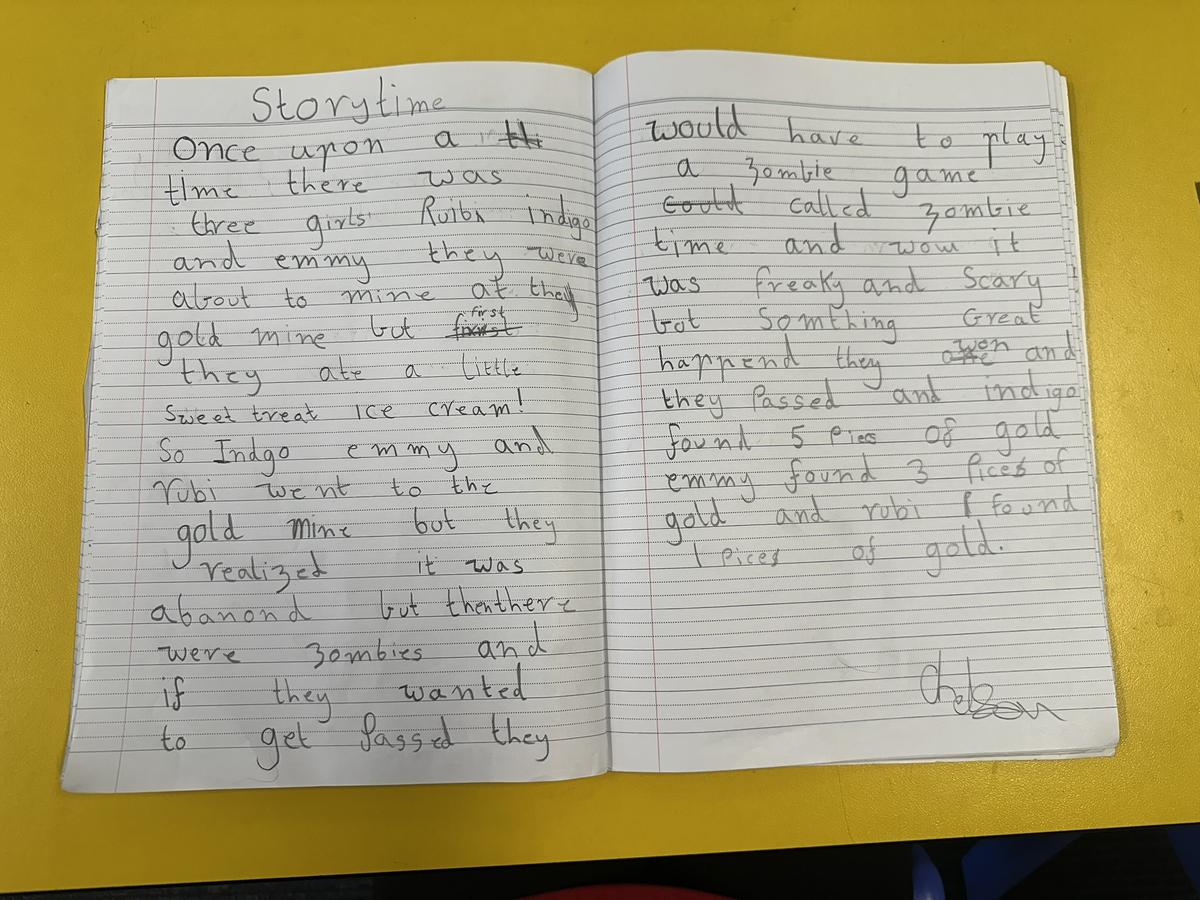 Storytime
Once upon a
time there was
three girls Ruibi indigo
and emmy they were
about to mine at they
gold mine but first
they ate a little
sweet treat ice cream!
So Indgo emmy and
rubi went to the
gold mine but they
realized it was
abanond but thenthere
were zombies and
if they wanted
to get Passed they
would have to play
a zombie game
called zombie
time and wow it
was freaky and Scary
but Somthing Great
happend they won and
they Passed and indigo
found 5 Pies of gold
emmy found 3 Pices of
gold and rubi found
1 Pices of gold.